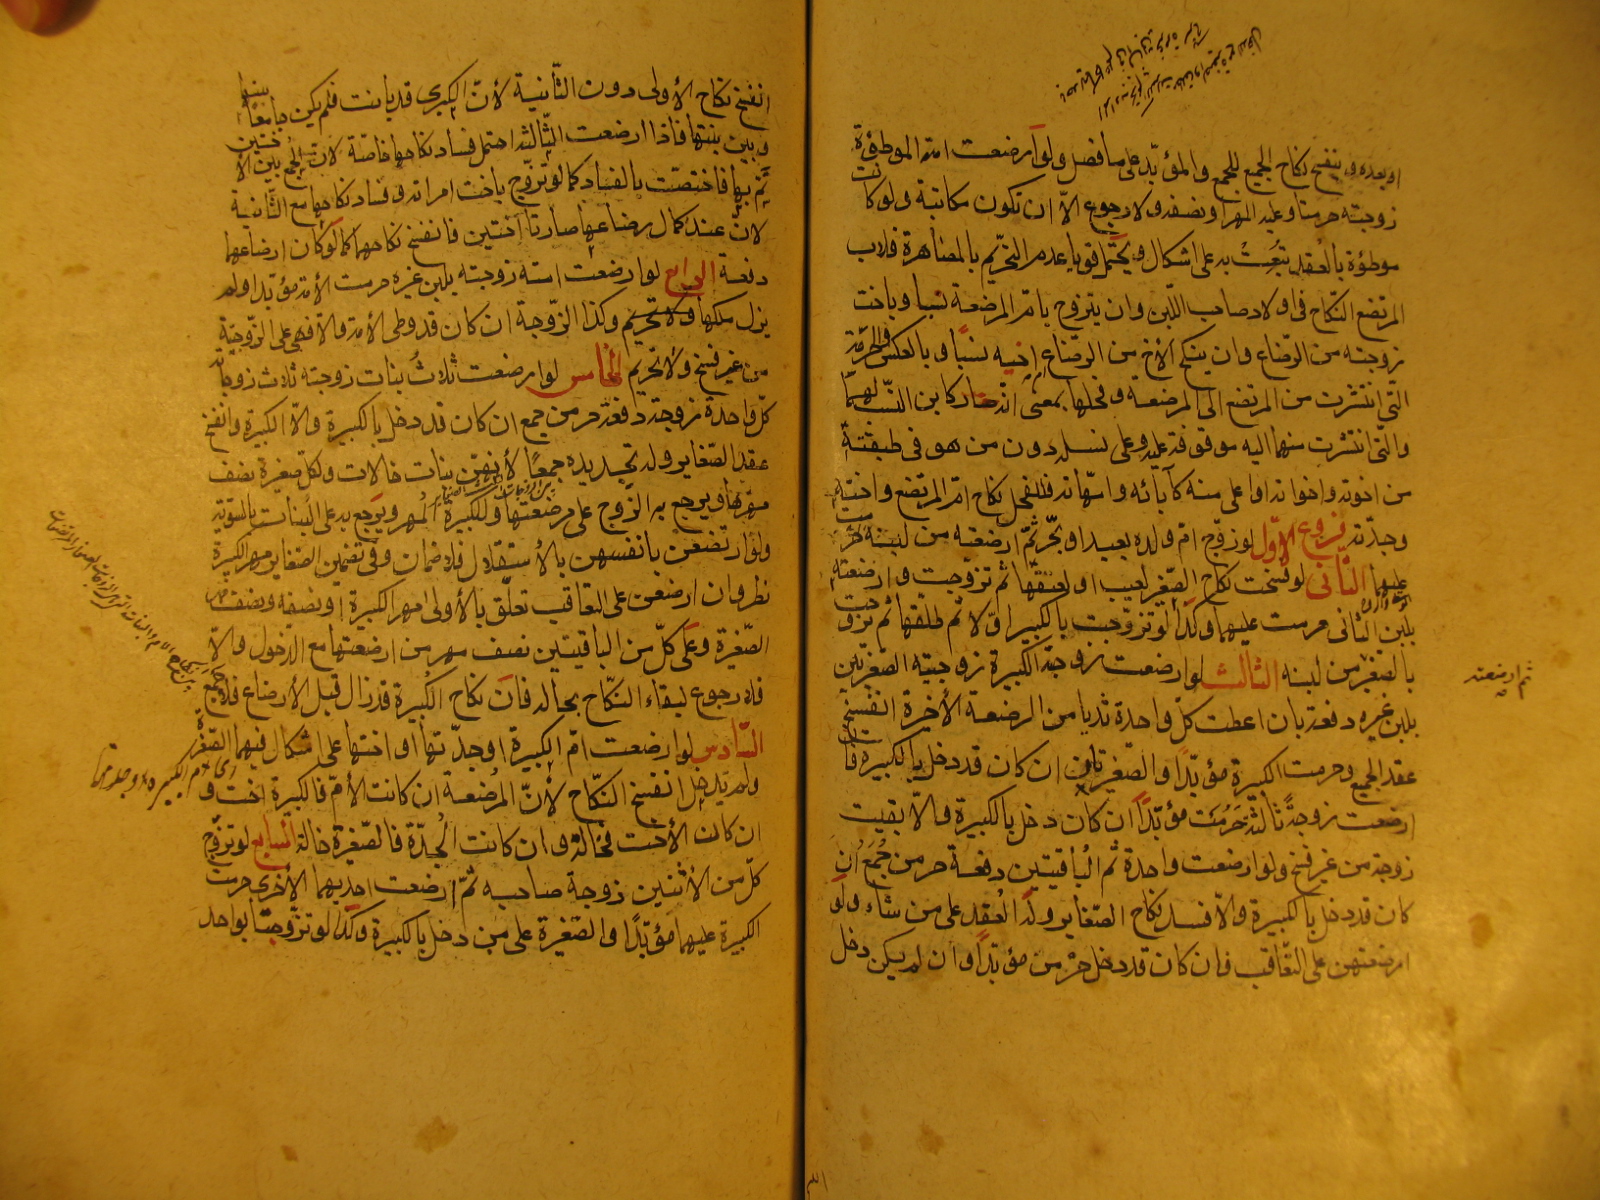 او بعده و ينفسخ نكاح الجميع للجمع والمؤبد على ما فصل ولو ارضعت امته الموطوءة
زوجته حرمتا وعليه المهر او نصفه ولا رجوع الا ان تكون مكاتبة ولو كانت
موطوءة بالعقد تبعت به على اشكال ويحتمل قويا عدم التحريم بالمصاهرة فلاب
المرتضع النكاح فى اولاد صاحب اللبن وان يتزوج بام المرضعة نسبا وباخت
زوجته من الرضاع وان ينكح الاخ من الرضاع ام اخيه نسبا وبالعكس والحرمة
التى انتشرت من المرتضع الى المرضعة وفحلها بمعنى انه صار كابن النسب لهما
والتى انتشرت منهما اليه موقوفة عليه وعلى نسله دون من هو فى طبقته
من اخوته واخواته او اعلى منه كآبائه وامهاته فللفحل نكاح ام المرتضع واخته
وجدته فروع الاول لو زوج ام ولده بعبد او بحر ثم ارضعته من لبنه حرمت
عليهما الثانى لو فسخت نكاح الصغير لعيب او لعتقها ثم تزوجت وارضعته
بلبن الثانى حرمت عليهما وكذا لو تزوجت بالكبير اولا ثم طلقها ثم تزوجت
بالصغير من لبنه الثالث لو ارضعت زوجته الكبيرة زوجتيه الصغيرتين
بلبن غيره دفعة بان اعطت كل واحدة ثديا من الرضعة الأخيرة انفسخ
عقد الجميع وحرمت الكبيرة مؤبدا والصغيرتان ان كان قد دخل بالكبيرة فان
ارضعت زوجة ثالثة حرمت مؤبدا ان كان دخل بالكبيرة والا بقيت
زوجة من غير فسخ ولو ارضعت واحدة ثم الباقيتين دفعة حرمن جمع ان
كان قد دخل بالكبيرة والا فسد نكاح الصغاير وله العقد على من شاء ولو
ارضعتهن على التعاقب فان كان قد دخل حرمن مؤبدا وان لم يكن دخل
ثم ارضعته
انفسخ نكاح الأولى دون الثانية لأن الكبرى قد بانت فلم يكن جامعا بينها
وبين بنتها فاذا ارضعت الثالثة احتمل فساد نكاحها خاصة لأن الجمع بين الأختين
تم بها فاختصت بالفساد كما لو تزوج باخت امراته وفساد نكاحها مع الثانية
لان عند كمال رضاعها صارتا اختين فانفسخ نكاحهما كما لو كان ارضاعهما
دفعة الرابع لو ارضعت امته زوجته بلبن غيره حرمت الأمة مؤبدا ولم
يزل ملكها ولا تحريم وكذا الزوجة ان كان قد وطى الأمة والا فهى على الزوجية
من غير فسخ ولا تحريم الخامس لو ارضعت ثلاث بنات زوجته ثلاث زوجاته
كل واحدة زوجة دفعة حرمن جمع ان كان قد دخل بالكبيرة والا الكبيرة وانفسخ
عقد الصغاير وله تجديده جمعا لأنهن بنات خالات ولكل صغيرة نصف
مهرها ويرجع به الزوج على مرضعتها وللكبيرة المهر ويرجع به على البنات بالسوية
ولو ارتضعن بانفسهن بالأستقلال فلا ضمان وفى تضمين الصغاير مهر الكبيرة
نظر وان ارضعن على التعاقب تعلق بالأولى مهر الكبيرة او نصفه ونصف مهر
الصغيرة وعلى كل من الباقيتين نصف مهر من ارضعتها مع الدخول والا
فلا رجوع لبقاء النكاح بحاله فان نكاح الكبيرة قد زال قبل الأرضاع فلا جمع
السادس لو ارضعت ام الكبيرة او جدتها او اختها على اشكال فيهما الصغيرة
ولم يدخل انفسخ النكاح لأن المرضعة ان كانت الأم فالكبيرة اخت و
ان كانت الأخت فخالة وان كانت الجدة فالصغيرة خالة السابع لو تزوج
كل من الاثنين زوجة صاحبه ثم ارضعت احديهما الأخرى حرمت
الكبيرة عليهما مؤبدا والصغيرة على من دخل بالكبيرة وكذا لو تزوجتا بواحد
اى ام الكبيرة او جدتها